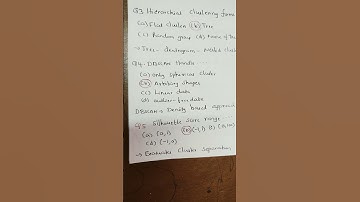 Q3 Hierarchical clustering forms
(a) Flat cluster (b) Tree
(c) Random group (d) None of
→ Tree - dendrogram = nested clust
Q4. DBSCAN Handle
(a) only spherical cluster
(b) Arbitrary shapes
(c) Linear data
(d) outlier-free data
DBSCAN = Density based approach
Q5 Silhouette score range
(a) (0,1) (b) (-1,1) (c) (0,∞)
(d) (-1,0)
→ Evaluates cluster separation